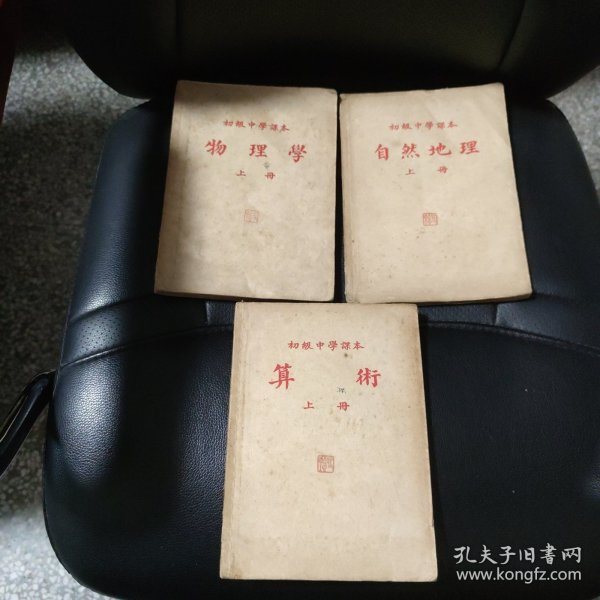 初級中學課本
物理學
上冊
初級中學課本
自然地理
上冊
初級中學課本
算術
上冊
孔夫子旧書网
www.kongfz.com